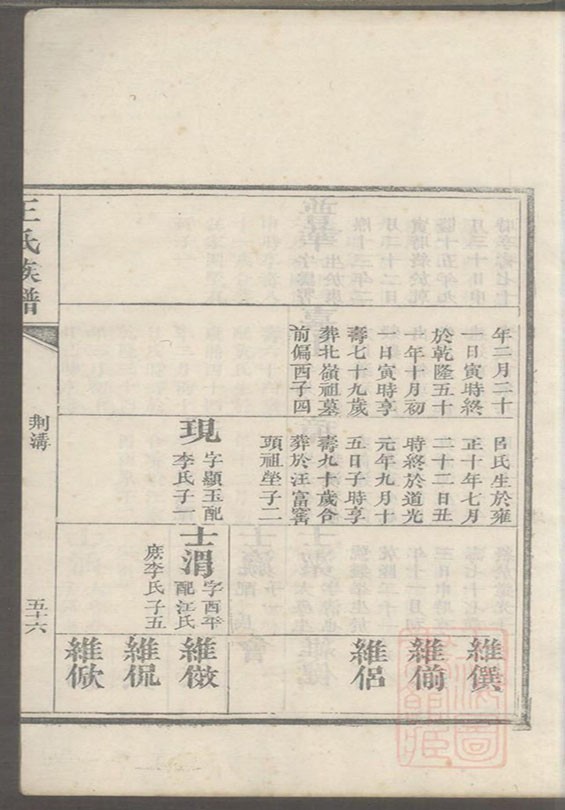 年二月二十
一日寅時終
於乾隆五十
年十月初
一日寅時享
壽七十九歲
葬北嶺祖墓
前偏西子四
呂氏生於雍
正十年七月
二十二日丑
時終於道光
元年九月十
五日子時享
壽九十歲合
葬於汪富窰
頭祖塋子二
現
字顯玉配
李氏子一
士渭
字酉平
配汪氏
庶李氏子五
維僎
維偂
維侶
維
維侃
維
王氏族譜
荆溝
五十六